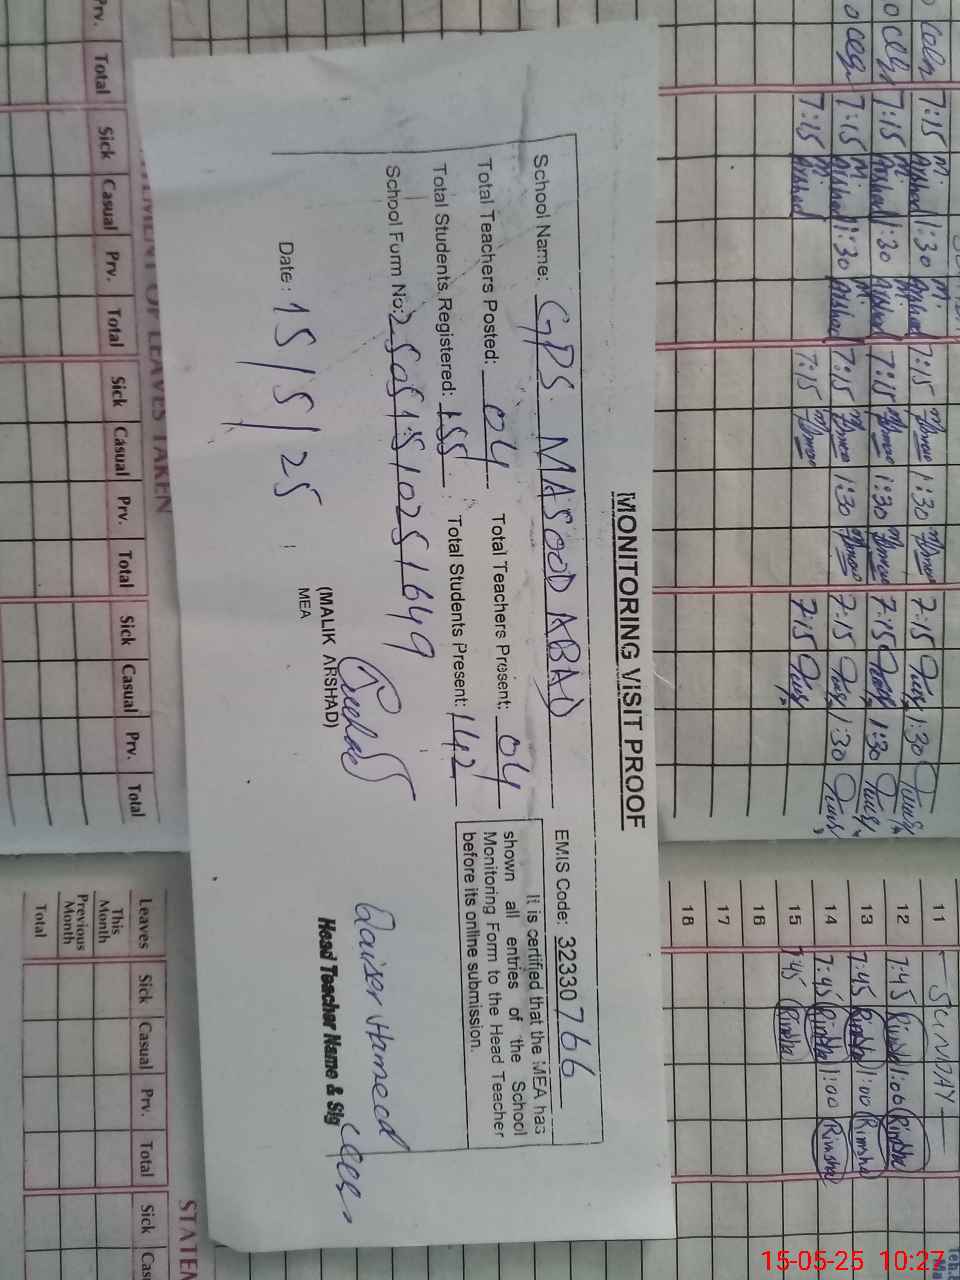 MONITORING VISIT PROOF
School Name: GPS MASOOD ABAD EMIS Code: 32330766
Total Teachers Posted: 04 Total Teachers Present: 04
Total Students Registered: 155 Total Students Present: 142
School Form No: 25051510251649
It is certified that the MEA has
shown all entries of the School
Monitoring Form to the Head Teacher
before its online submission.
Date: 15/5/25
(MALIK ARSHAD)
MEA
Qaiser Hameed
Head Teacher Name & Sig
7:15 M. Arshad 1:30 M. Arshad 7:15 1:30 7:15 1:30
7:15 M. Arshad 1:30 M. Arshad 7:15 1:30 7:15 1:30
7:15 M. Arshad 1:30 M. Arshad 7:15 1:30 7:15 1:30
7:15 M. Arshad 7:15 7:15
11 - SUNDAY -
12 7:45 Rimsha 1:00 Rimsha
13 7:45 Rimsha 1:00 Rimsha
14 7:45 Rimsha 1:00 Rimsha
15 7:45 Rimsha
16
17
18
OF LEAVES TAKEN
Prv. Total Sick Casual Prv. Total Sick Casual Prv. Total Sick Casual Prv. Total
STATEM
Leaves Sick Casual Prv. Total Sick
This Month
Previous Month
Total
15-05-25 10:27